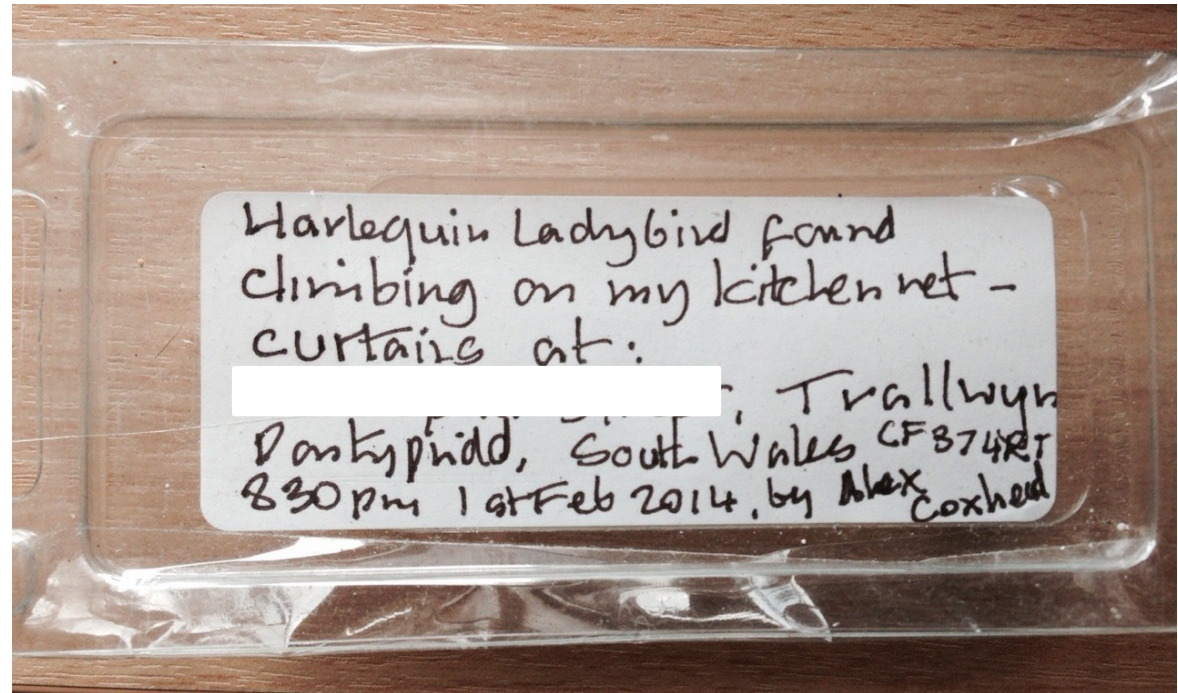 Harlequin Ladybird found
climbing on my kitchen net-
curtains at:
, Trallwyn
Pontypridd, South Wales CF374RT
830pm 1st Feb 2014, by Alex
Coxhead